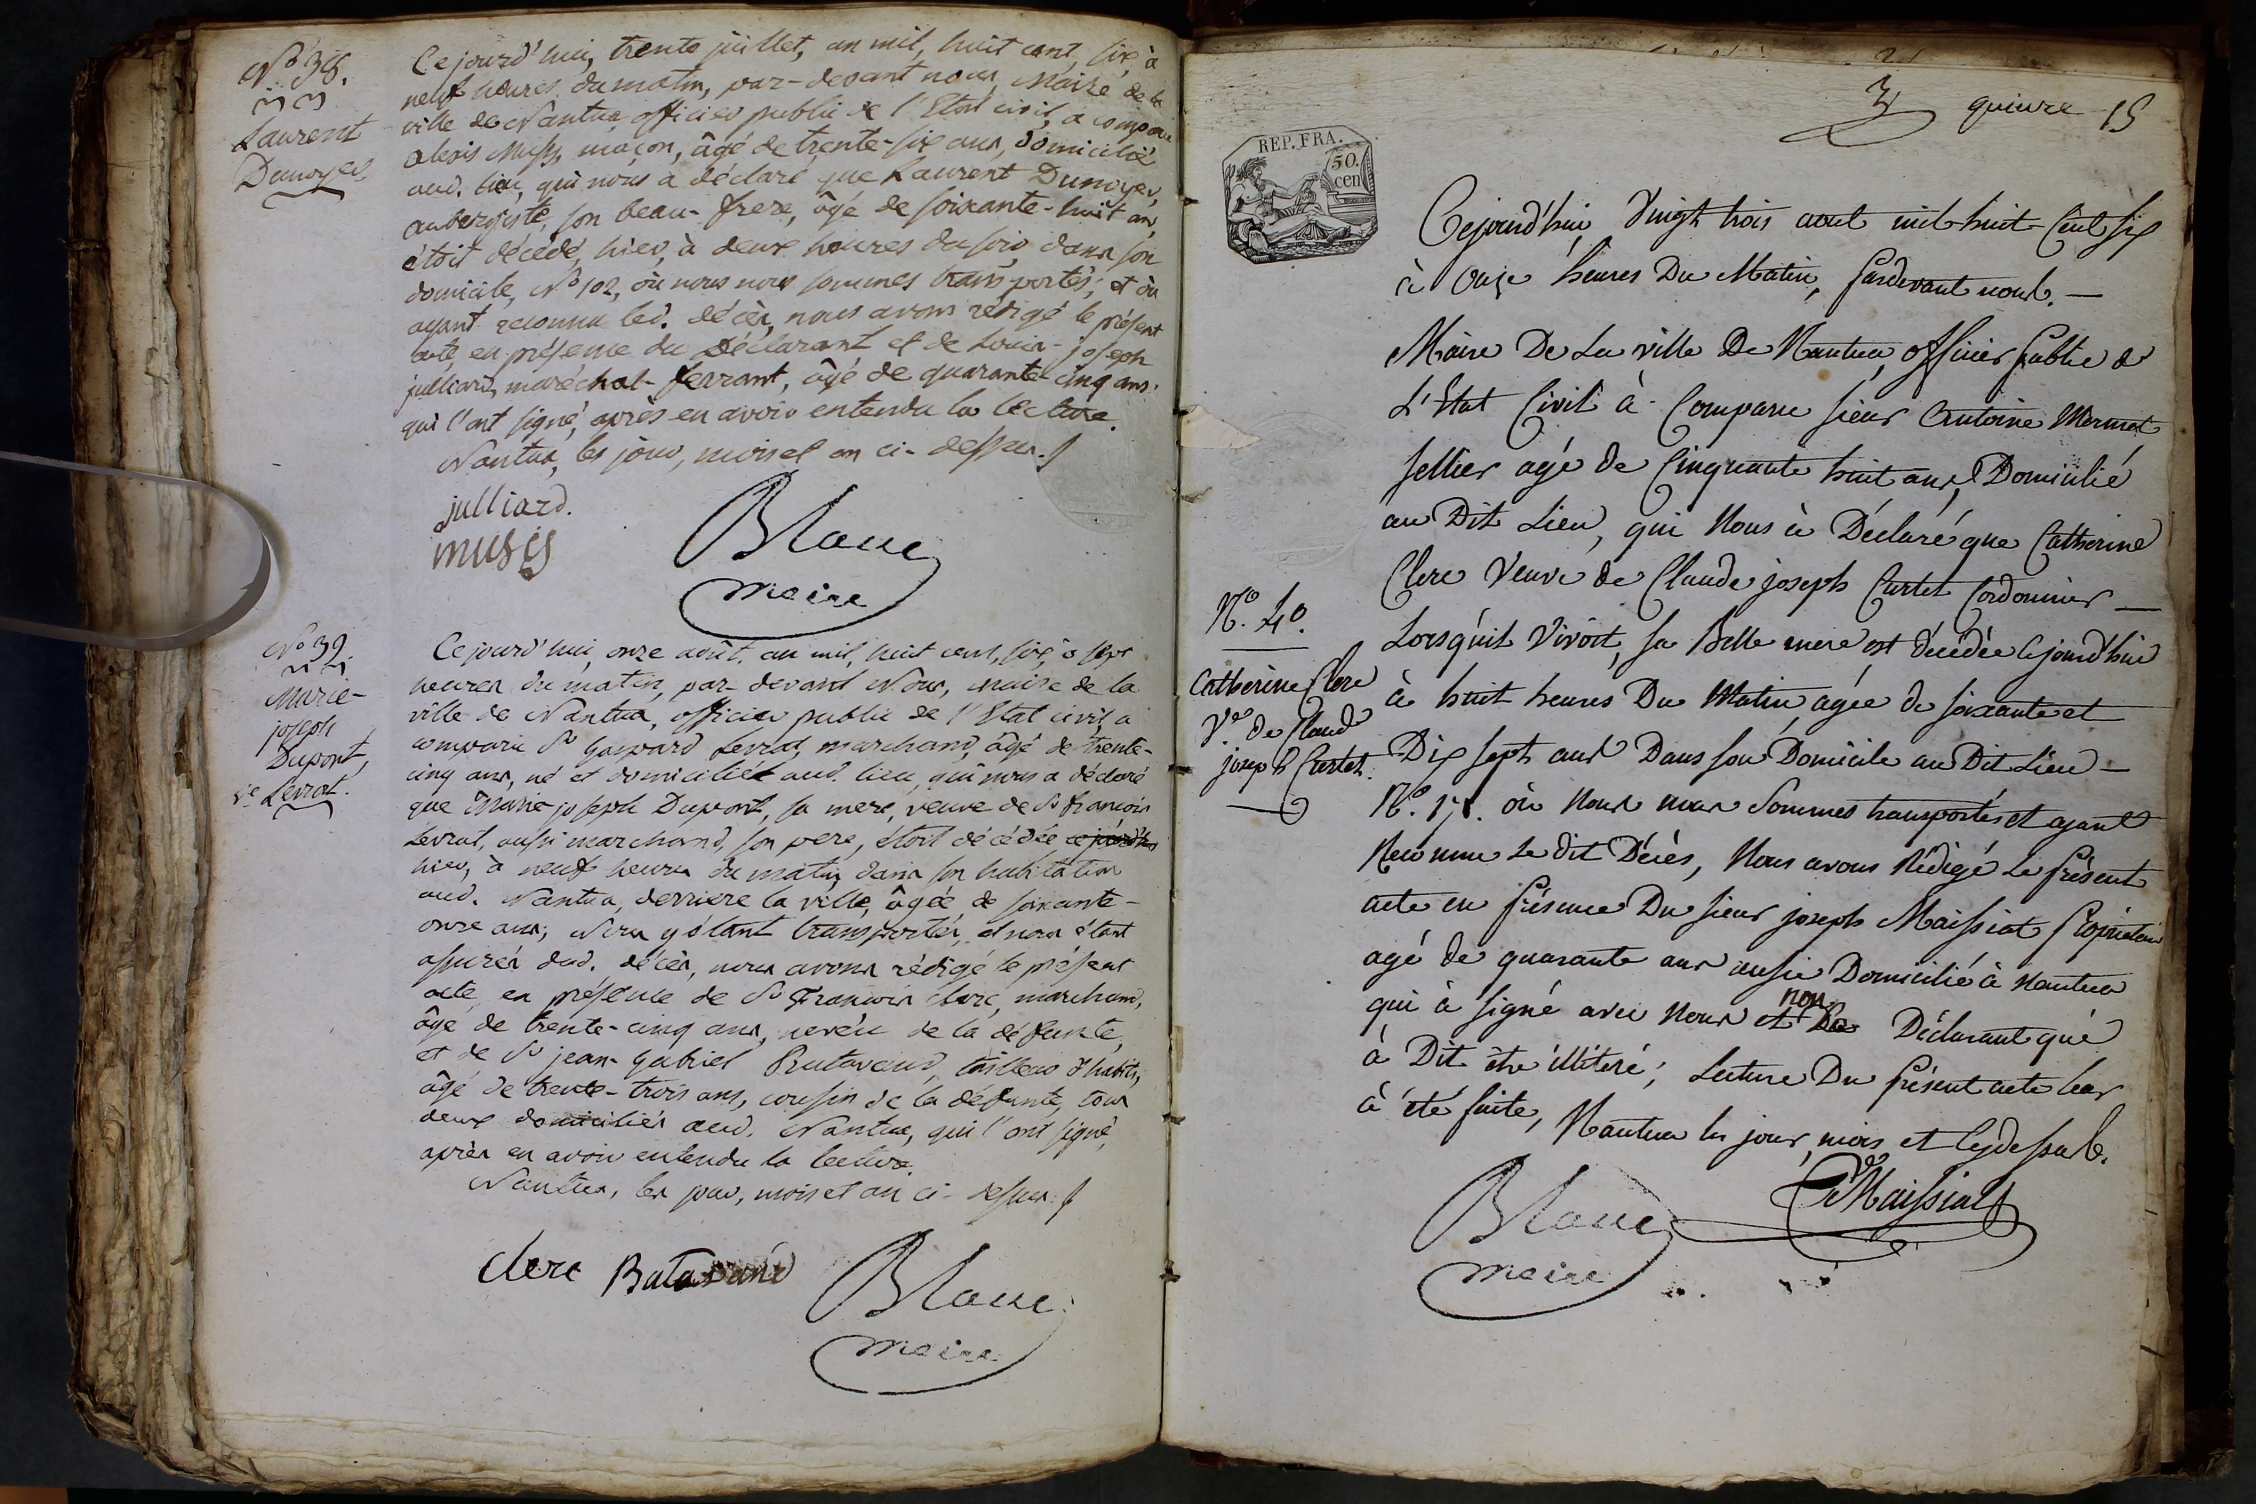 N.° 38.
Laurent
Dunoyer.
Ce jourd'hui, trente juillet, an mil, huit cent, six, à
neuf heures du matin, par-devant nous, Maire de la
ville de Nantua, officier public de l'Etat civil, a comparu
alexis Musy, maçon, âgé de trente-six ans, domicilié
aud. lieu, qui nous a déclaré que Laurent Dunoyer,
aubergiste, son beau-frere, âgé de soixante-huit ans,
étoit décédé, hier, à deux heures du soir, dans son
domicile, N.° 102, où nous nous sommes transportés; et où
ayant reconnu led. décès, nous avons rédigé le présent
acte, en présence du Déclarant et de Louis-joseph
julliard, maréchal-ferrant, âgé de quarante-cinq ans.
qui l'ont signé, après en avoir entendu la lecture.
Nantua, les jour, mois et an ci-dessus.
julliard.
Blanc
maire
N.° 39.
Marie-
joseph
Dupont,
v.e Levrat.
Ce jourd'hui, onze août, an mil, huit cent, six, à sept
heures du matin, par-devant Nous, maire de la
ville de Nantua, officier public de l'Etat civil, a
comparu S.r Gaspard Levrat, marchand, âgé de trente-
cinq ans, né et domicilié aud. lieu, qui nous a déclaré
que Marie joseph Dupont, sa mere, veuve de S.r françois
Levrat, aussi marchand, son pere, étoit décédée ce jourd'hui
hier, à neuf heures du matin, dans son habitation
aud. Nantua, derriere la ville, âgée de soixante-
onze ans; Nous y étant transportés, et nous étant
assurés dud. décès, nous avons rédigé le présent
acte, en présence de S.r François Clerc, marchand,
âgé de trente-cinq ans, neveu de la défunte,
et de S.r jean-Gabriel tailleur d'habits,
âgé de trente-trois ans, cousin de la défunte, tous
deux domiciliés aud. Nantua, qui l'ont signé,
après en avoir entendu la lecture.
Nantua, les jour, mois et an ci-dessus.
Clerc
Blanc
maire
3 quinze 15
REP. FRA.
50.
cen
Cejourd'hui, Vingt trois aout mil huit Cent six
à Onze heures Du Matin, pardevant nous. —
Maire De La ville De Nantua, officier public de
L'Etat Civil à Comparu sieur Antoine Mermet
sellier agé de Cinquante huit ans, Domicilié
au Dit Lieu, qui Nous à Déclaré que Catherine
Clerc Veuve de Claude joseph Curtet Cordonnier —
Lorsqu'il Vivoit, sa Belle mere est décédée Cejourd'hui
à huit heures Du Matin, agée de soixante et
Dix sept ans Dans son Domicile au Dit Lieu —
N.° où Nous nous Sommes transportés et ayant
Reconnu Le dit Décès, Nous avons Rédigé Le présent
acte en présence Du sieur joseph Maissiat propriétaire
agé de quarante ans aussi Domicilié à Nantua
qui à signé avec Nous et non Le Déclarant qui
à Dit être illitéré; Lecture Du présent acte leur
à été faite, Nantua les jour, mois et Cydessus.
N.° 40.
Catherine Clerc
V.e De Claude
joseph Curtet.
Blanc
maire
Maissiat